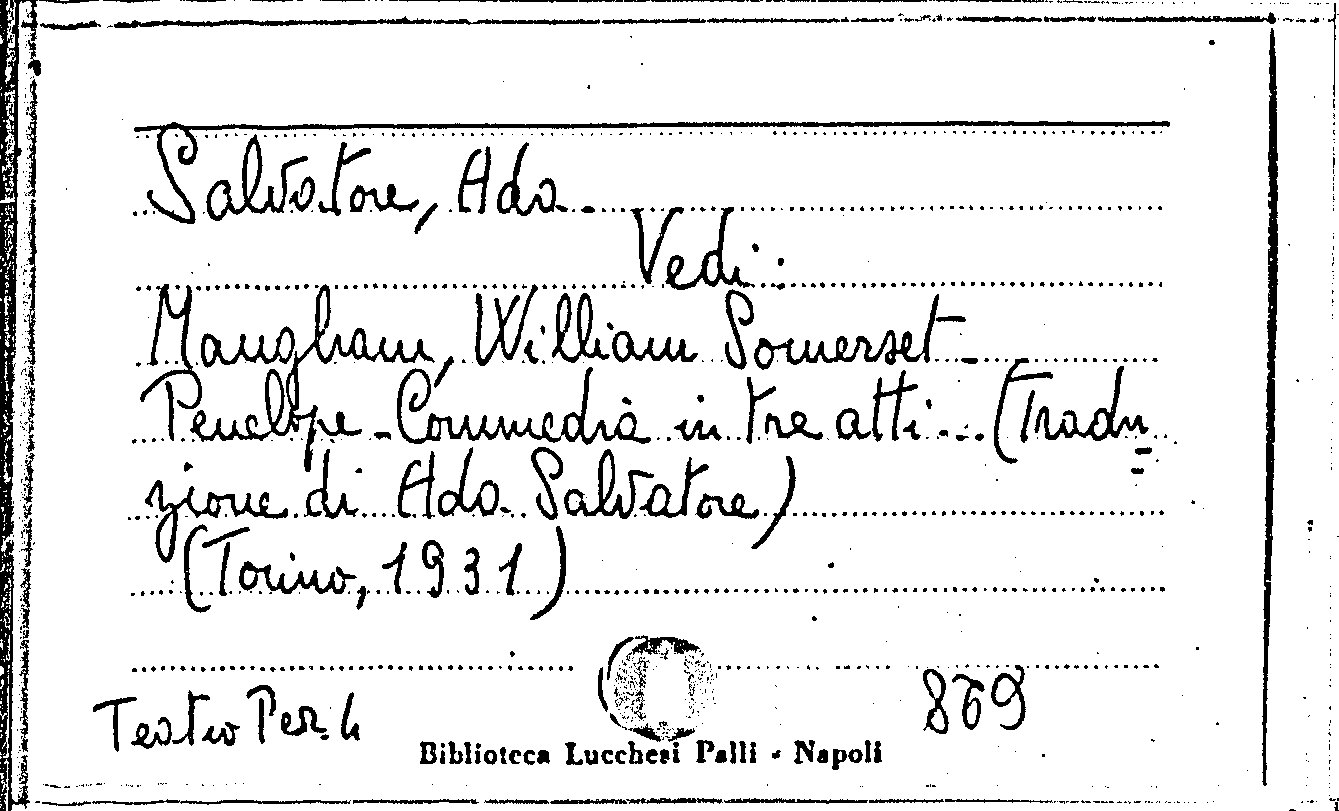 Salvatore, Ada.
Vedi:
Maugham, William Somerset -
Penelope - Commedia in tre atti... (Tradu=
zione di Ada Salvatore)
(Torino, 1931)
Teatro Per. 4
869
Biblioteca Lucchesi Palli - Napoli